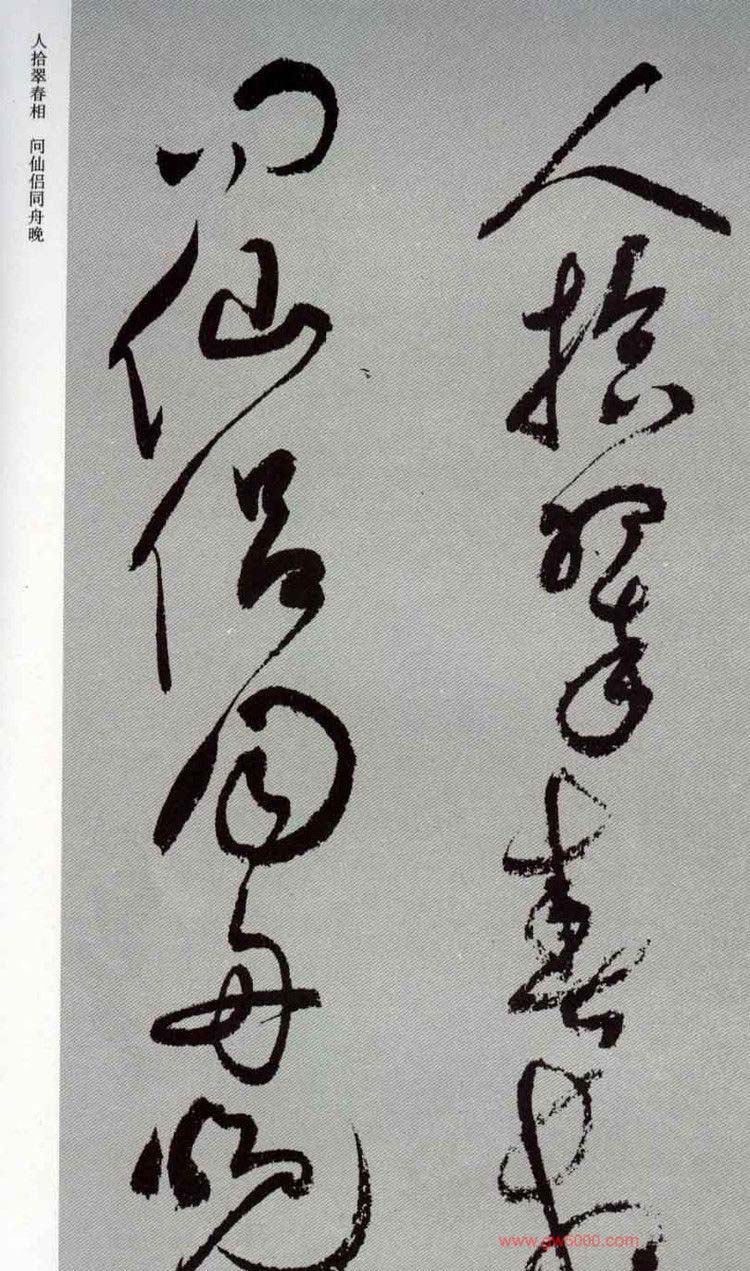 人拾翠春相
问仙侣同舟晚
人拾翠春相　问仙侣同舟晚
www.gw5000.com